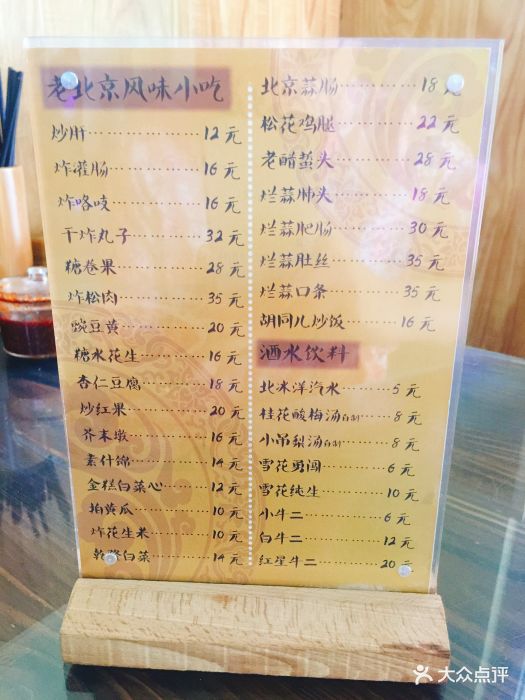 老北京风味小吃
炒肝 12元
炸灌肠 16元
炸咯吱 16元
干炸丸子 32元
糖卷果 28元
炸松肉 35元
豌豆黄 20元
糖水花生 16元
杏仁豆腐 18元
炒红果 20元
芥末墩 16元
素什锦 14元
金糕白菜心 12元
拍黄瓜 10元
炸花生米 10元
乾隆白菜 14元
北京蒜肠 18元
松花鸡腿 22元
老醋蜇头 28元
烂蒜肺头 18元
烂蒜肥肠 30元
烂蒜肚丝 35元
烂蒜口条 35元
胡同儿炒饭 16元
酒水饮料
北冰洋汽水 5元
桂花酸梅汤自制 8元
小吊梨汤自制 8元
雪花勇闯 6元
雪花纯生 10元
小牛二 6元
白牛二 12元
红星牛二 20元
大众点评